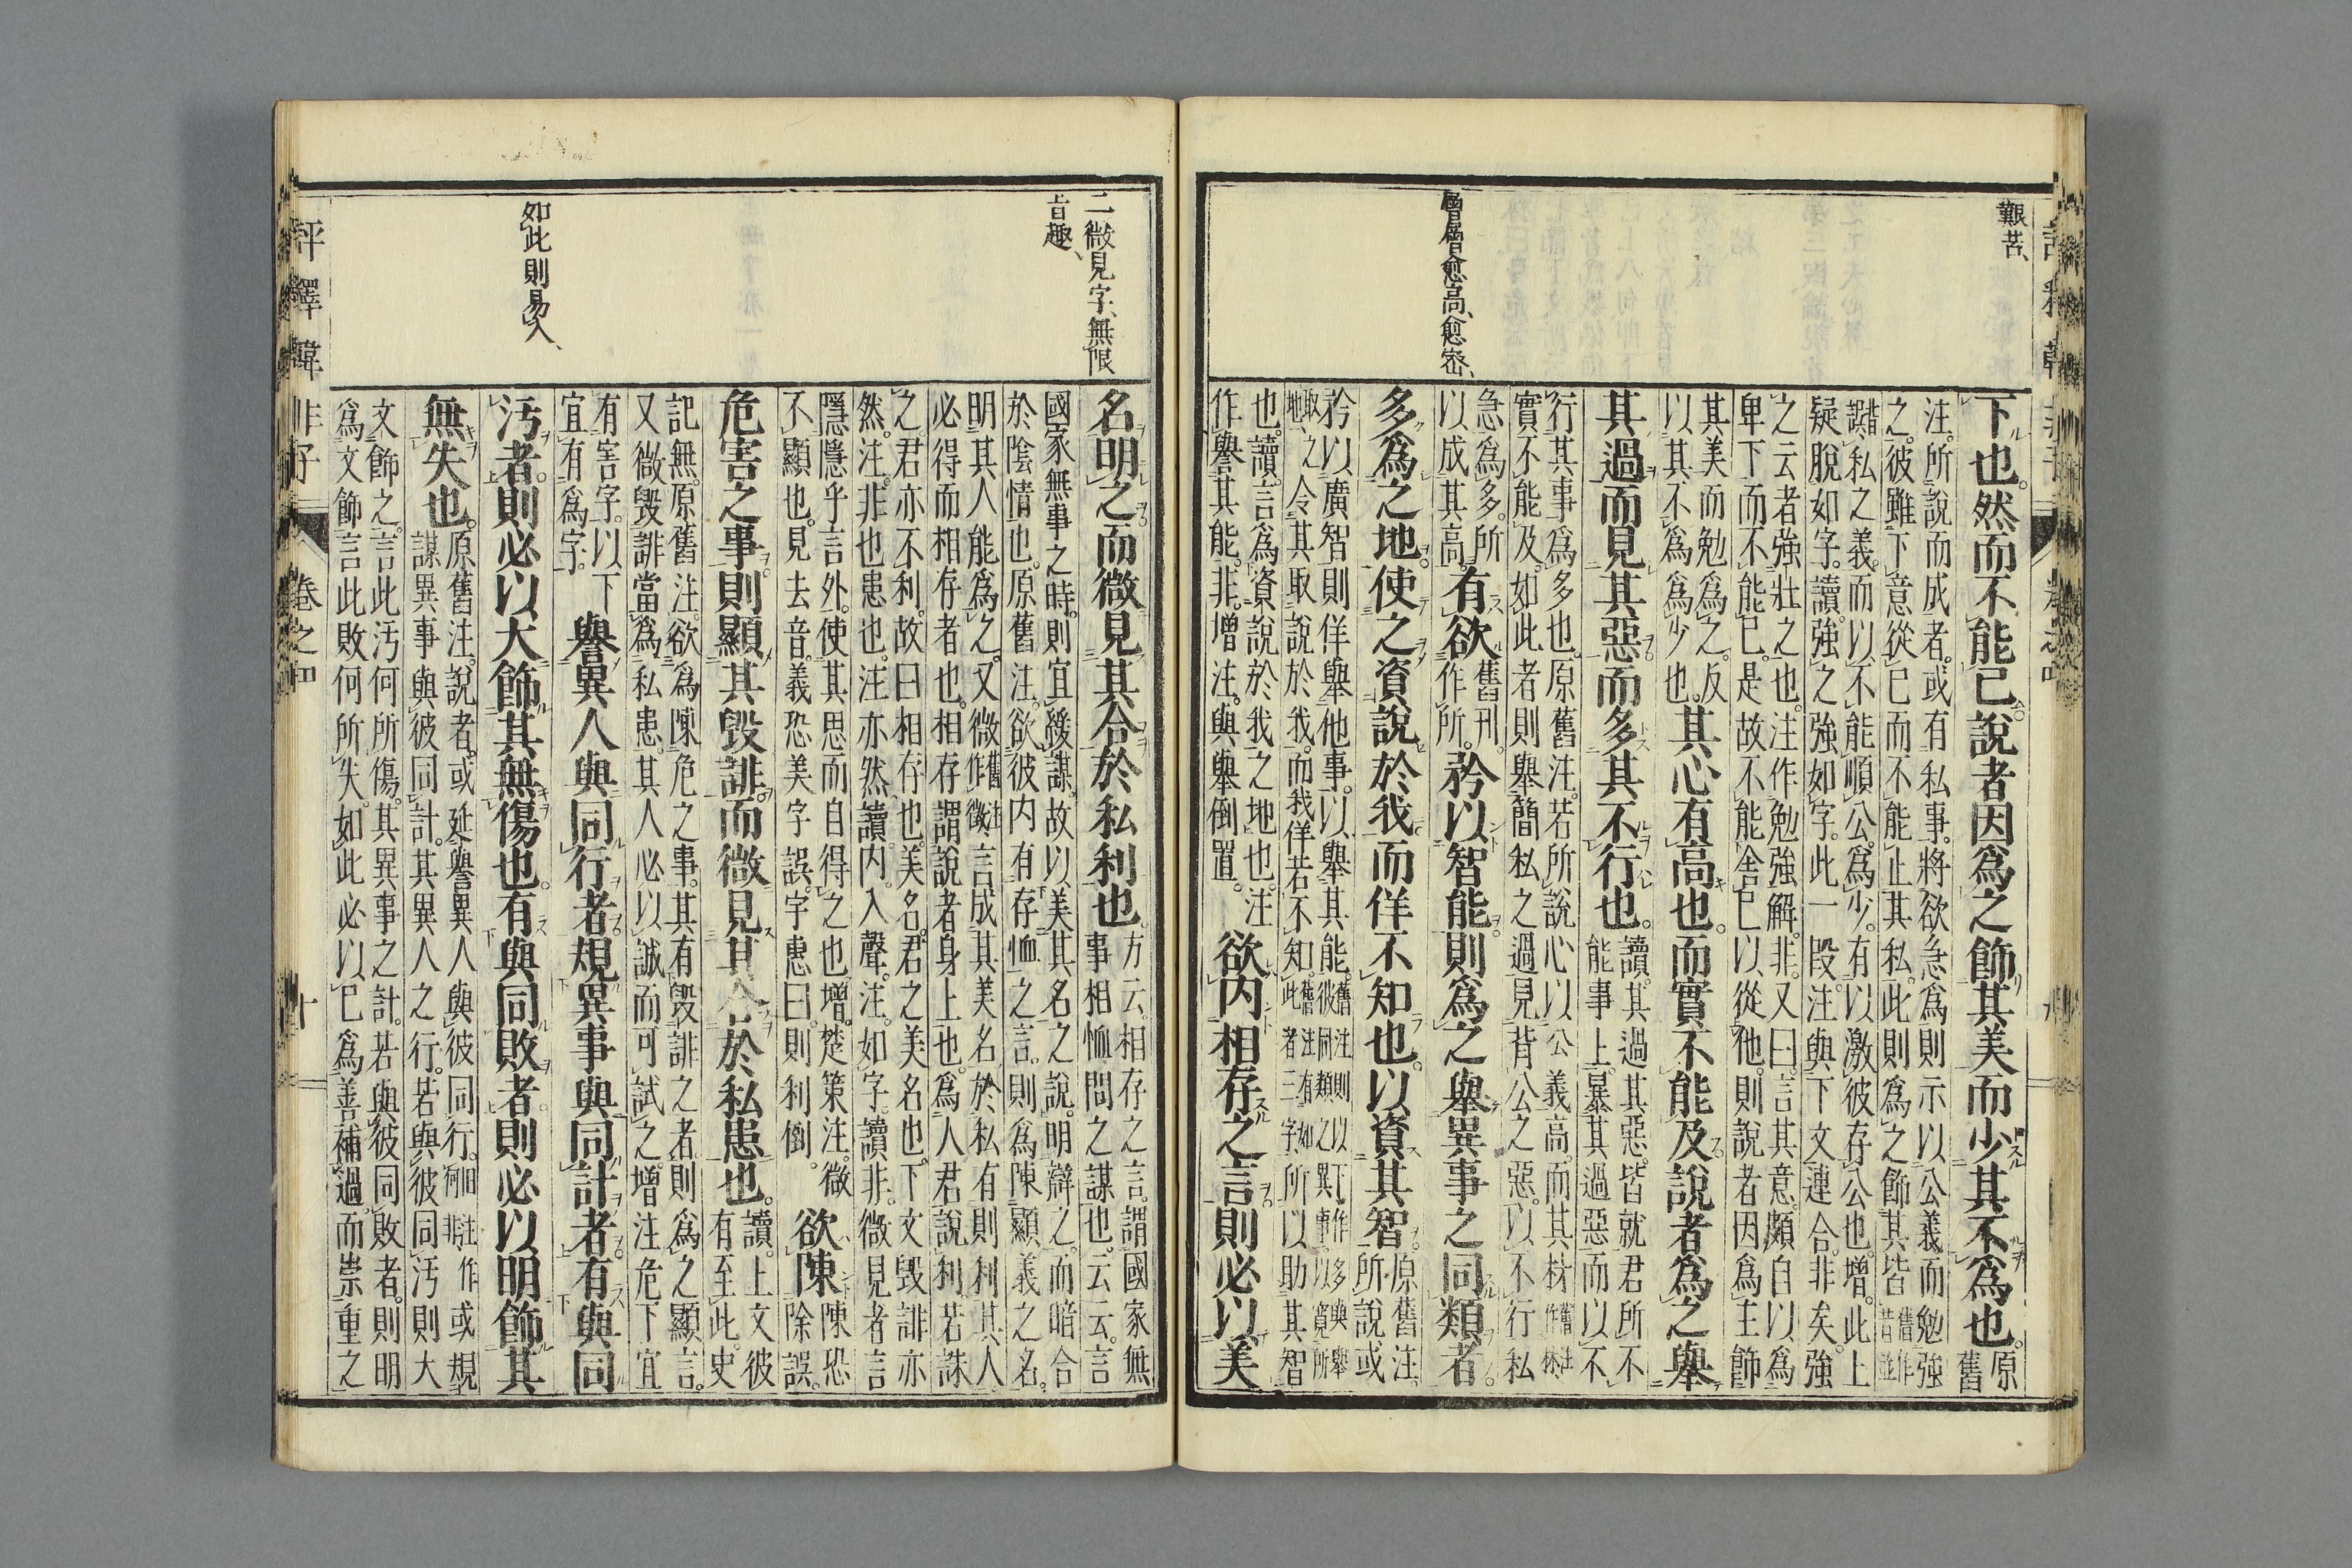 艱苦、
層層愈高、愈密、
下也。然而不能已。說者因爲之飾其美而少其不爲也。原舊
注。所說而成者。或有私事。將欲急爲則示以公義而勉強
之。彼雖下意從已而不能止其私。此則爲之飾其皆舊作昔並
誤私之義。而以不能順公。爲少。有以激彼存公也。增。此上
疑脫如字。讀。強之強如字。此一段。注與下文連合。非矣。強
之云者強壯之也。注作勉強解。非。又曰。言其意。頗自以爲
卑下而不能已。是故不能舍已以從他。則說者因爲主飾
其美而勉爲之。反以其不爲爲少也。其心有高也。而實不能及。說者爲之舉
其過而見其惡而多其不行也。讀。其過其惡。皆就君所不能事上。暴其過惡而以不
行其事爲多也。原舊注。若所說心以公義高。而其材舊注作林
實不能及。如此者則舉簡私之過見背公之惡。以不行私
急爲多。所以成其高。有欲舊刊作所。矜以智能。則爲之舉異事之同類者。
多爲之地。使之資說於我。而佯不知也。以資其智。原舊注。所說或
矜以廣智則佯舉他事。以舉其能。舊注則以下作多與舉彼同類之異事。以寬所
取地、之令其取說於我。而我佯若不知。舊注有如此者三字所以助其智
也。讀。言爲資說於我之地也。注作譽其能。非。增注。與舉倒置。欲內相存之言。則必以美
二微見字、無限旨趣、
如此則易入、
名明之而微見其合於私利也。方云相存之言。謂國家無事相恤問之謀也。云云。言
國家無事之時。則宜緩謀。故以美其名之說。明辯之。而暗合
於陰情也。原舊注。欲彼內有存恤之言。則爲陳顯義之名。
明其人能爲之。又微舊注作徵言成其美名於私有則利其人
必得而相存者也。相存謂說者身上也。爲人君說利若誅
之君亦不利。故曰相存也。美名。君之美名也。下文毀誹亦
然。注。非也患也。注亦然。讀。內。入聲。注。如字。讀非。微見者言
隱隱乎言外。使其思而自得之也。增。楚策注。微
不顯也。見去音。義恐美字誤。字惠曰。則利倒。欲陳陳恐除誤。
危害之事。則顯其毀誹而微見其合於私患也。讀。上文彼有至此。史
記無。原舊注。欲爲陳危之事。其有毀誹之者則爲之顯言。
又微毀誹當爲私患。其人必以誠而可試之。增注危下宜
有害字。以下宜有爲字。譽異人與同行者。規異事與同計者。有與同
汚者。則必以大飾其無傷也。有與同敗者。則必以明飾其
無失也。原舊注。說者。或延譽異人與彼同行。舊注作或規謀異事與彼同計。其異人之行。若與彼同汚則大
文飾之。言此汚何所傷。其異事之計。若與彼同敗者。則明
爲文飾言此敗何所失。如此必以已爲善補過。而崇重之
評釋韓非子
卷之四
十